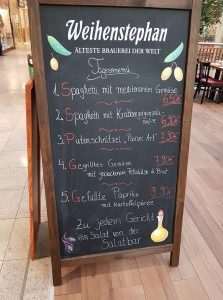 Weihenstephan
ÄLTESTE BRAUEREI DER WELT
Tagesmenü
1. Spaghetti mit mediteranen Gemüse
6,50€
2. Spaghetti mit
3. Putenschnitzel „Pariser Art"
4. Gegrilltes Gemüse
mit gebackenem & Brot
5. Gefüllte Paprika
mit Kartoffelpüree
Zu jedem Gericht
ein Salat von der
Salatbar